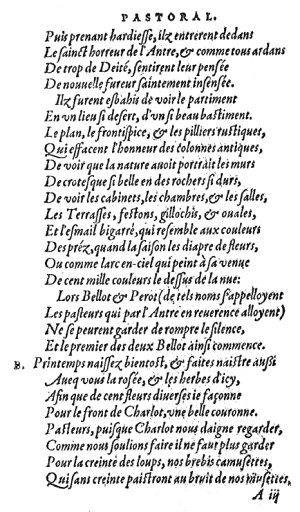 PASTORAL.
Puis prenant hardiesse, ilz entrerent dedans
Le sainct horreur de l'Antre, & comme tous ardans
De trop de Deité, sentirent leur pensée
De nouuelle fureur saintement insensée.
Ilz furent esbahis de voir le partiment
En vn lieu si desert, d'vn si beau bastiment.
Le plan, le frontispice, & les pilliers rustiques,
Qui effacent l'honneur des colonnes antiques,
De voir que la nature auoit portrait les murs
De crotesque si belle en des rochers si durs,
De voir les cabinets, les chambres, & les salles,
Les Terrasses, festons, gillochis, & ouales,
Et l'esmail bigarré, qui resemble aux couleurs
Des préz, quand la saison les diapre de fleurs,
Ou comme l'arc-en-ciel qui peint à sa venue
De cent mille couleurs le dessus de la nue:
Lors Bellot & Perot (de tels noms s'appelloyent
Les pasteurs qui par l'Antre en reuerence alloyent)
Ne se peurent garder de rompre le silence,
Et le premier des deux Bellot ainsi commence.
B. Printemps naissez bientost, & faites naistre außi
Aueq vous la rosée, & les herbes d'icy,
Afin que de cent fleurs diuerses ie façonne
Pour le front de Charlot, vne belle couronne.
Pasteurs, puisque Charlot nous daigne regarder,
Comme nous soulions faire il ne faut plus garder
Pour la creinte des loups, nos brebis camusettes,
Qui sans creinte paistront au bruit de nos musettes,
A iij